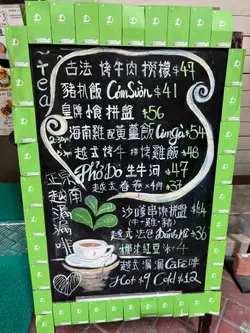 Tea
古法烤牛肉檬 $47
豬扒飯 Cơm Sườn $41
皇牌 拼盤 $56
海南雞配黃薑飯 Cơm gà $54
越式烤牛拼烤雞飯 $48
Phở Bò 生牛河 $47
越式春卷 $37
正宗越南滴滴啡
沙嗲串燒拼盤 $64
(牛·雞·豬)
越式法包 Bánh Mì $36
椰汁紅豆冰 +4
越式滴滴 Cafe 啡
Hot $9 Cold $12